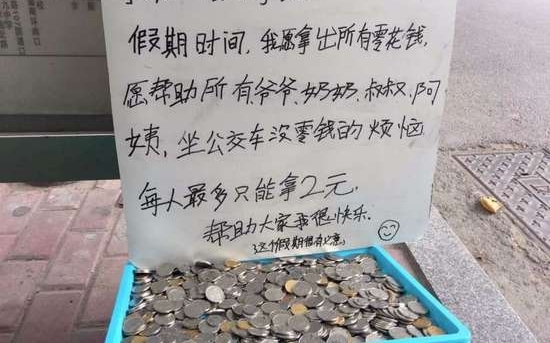 假期时间，我愿拿出所有零花钱，
愿帮助所有爷爷、奶奶、叔叔、阿
姨，坐公交车没零钱的烦恼
每人最多只能拿2元，
帮助大家我很快乐。
这个假期很有意